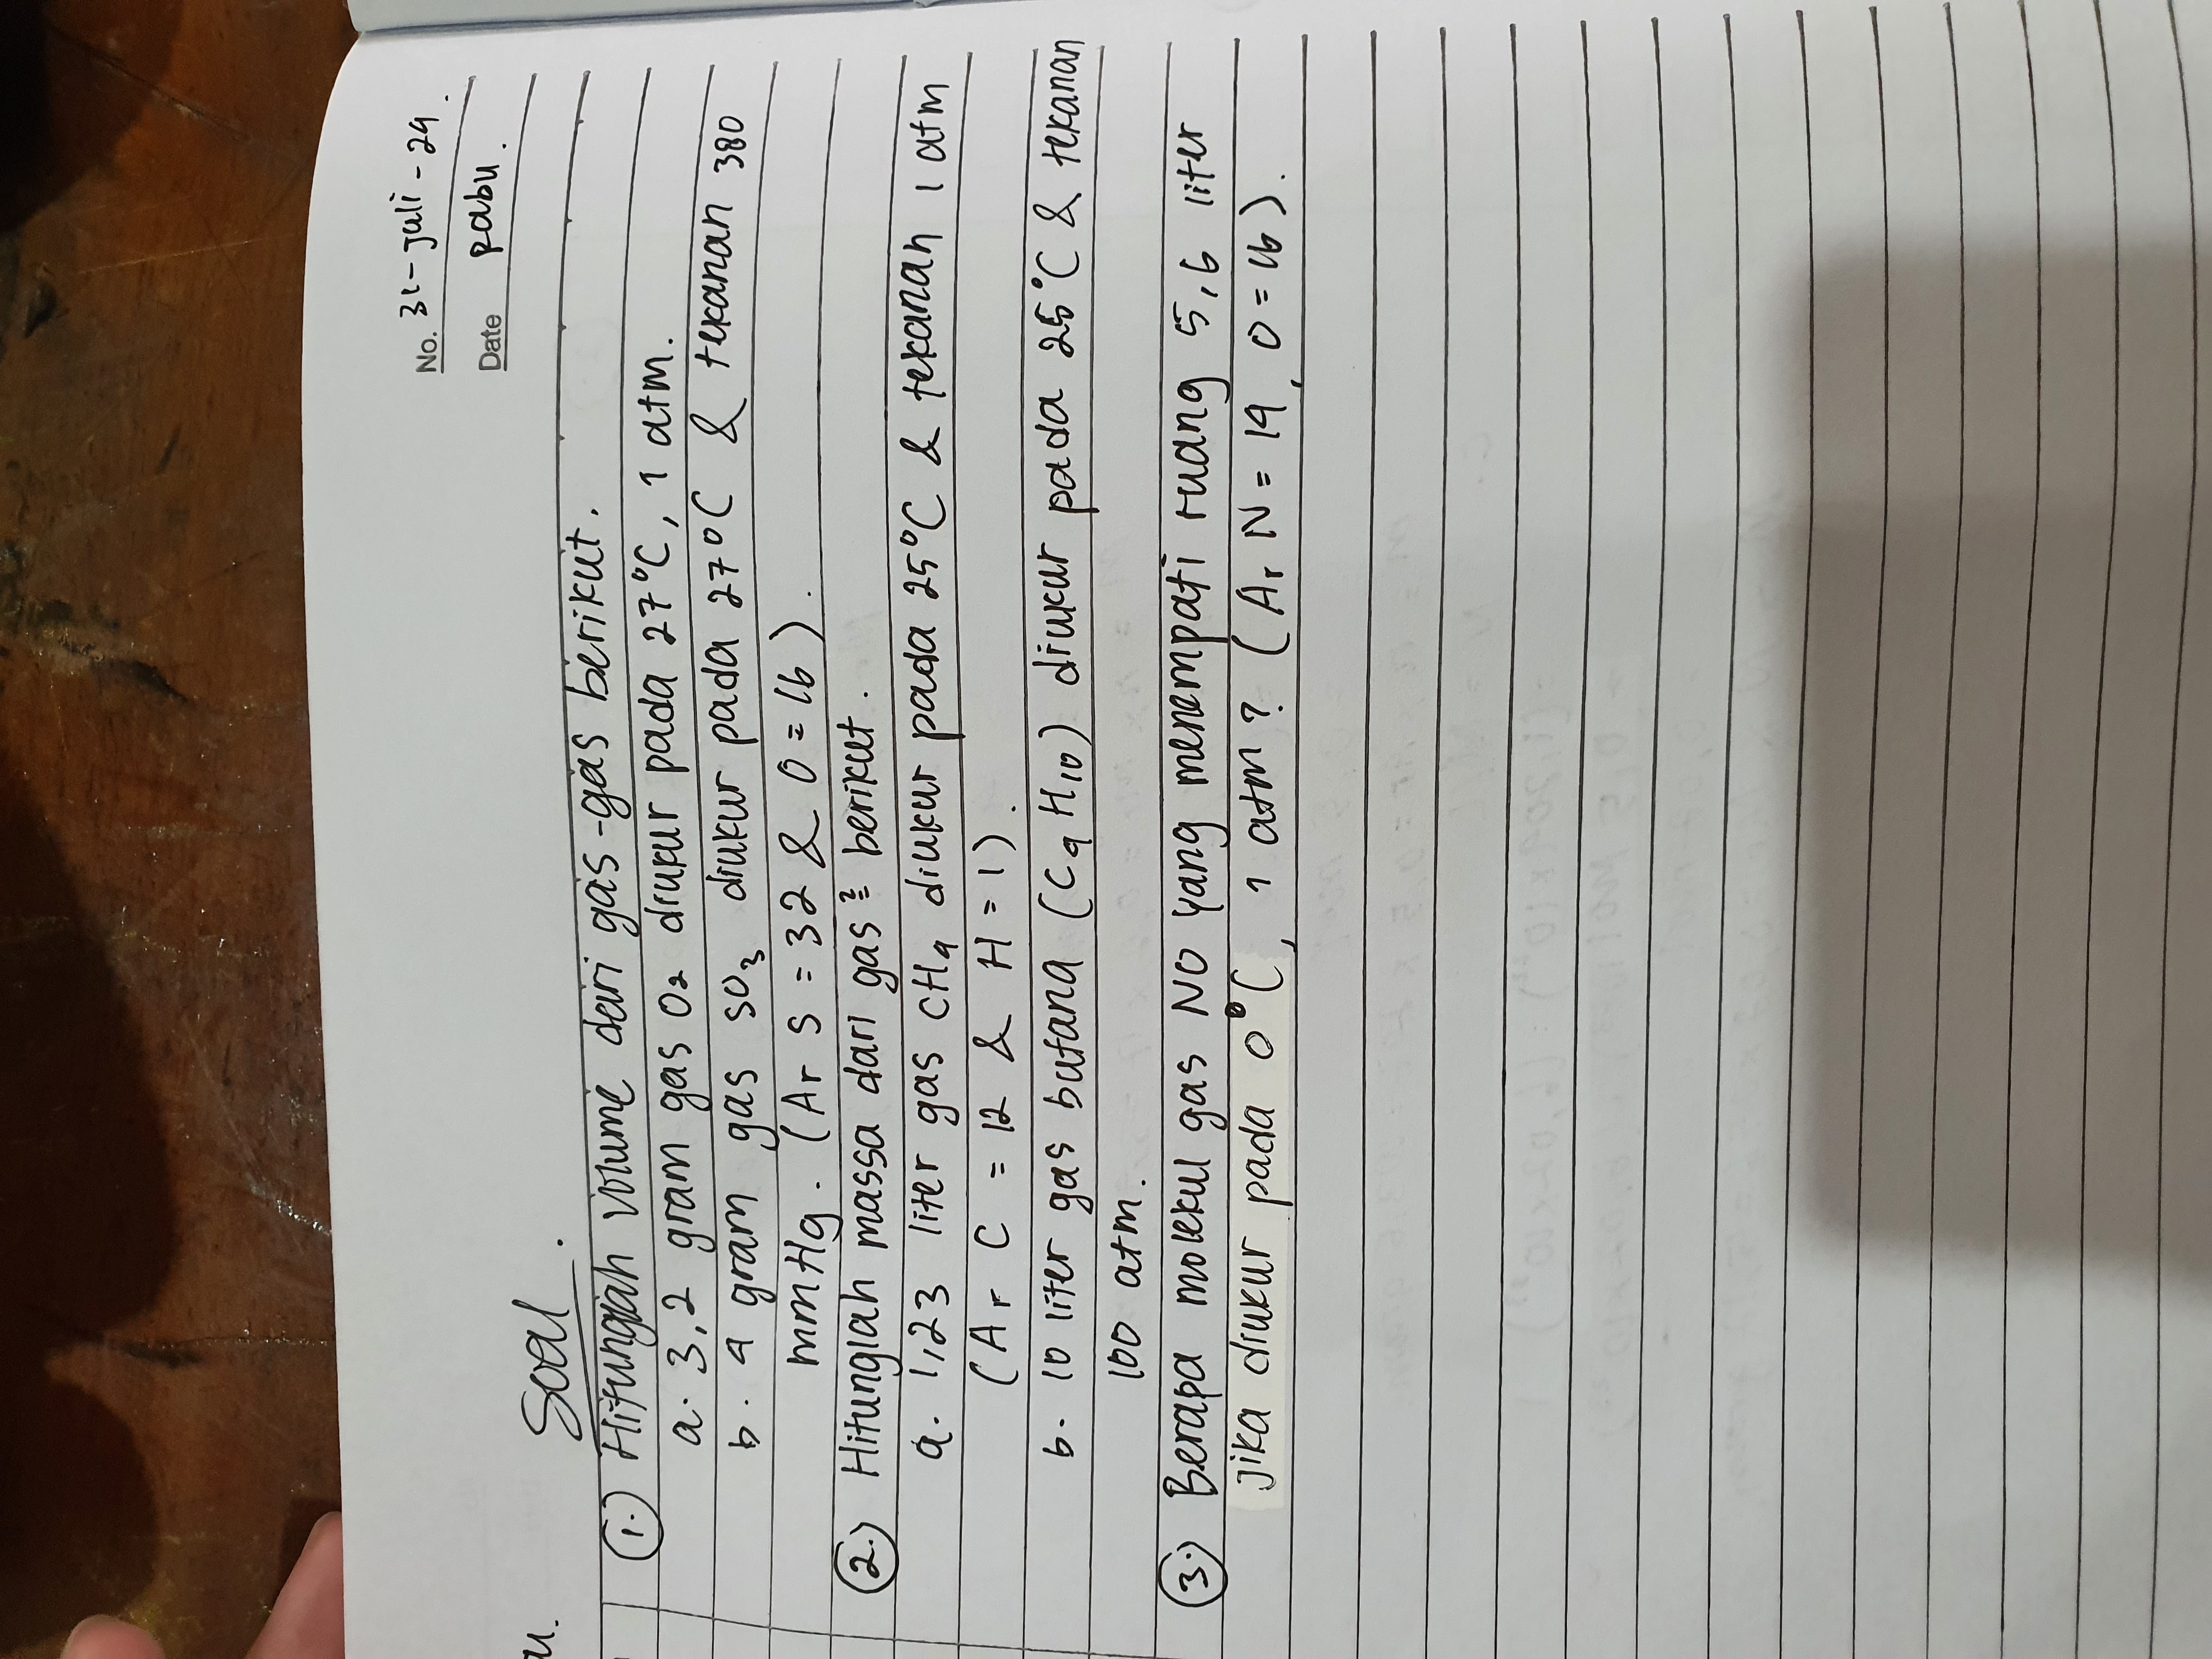 No. 31-Juli-24.
Date Rabu.
u.
Soal.
1.) Hitunglah volume dari gas-gas berikut.
a. 3,2 gram gas O₂ diukur pada 27°C, 1 atm.
b. 4 gram gas SO₃ diukur pada 27°C & tekanan 380
mmHg. (Ar S = 32 & O = 16).
2.) Hitunglah massa dari gas² berikut.
a. 1,23 liter gas CH₄ diukur pada 25°C & tekanan 1 atm
(Ar C = 12 & H = 1).
b. 10 liter gas butana (C₄H₁₀) diukur pada 25°C & tekanan
100 atm.
3.) Berapa molekul gas NO yang menempati ruang 5,6 liter
jika diukur pada 0°C, 1 atm? (Ar N = 14, O = 16).